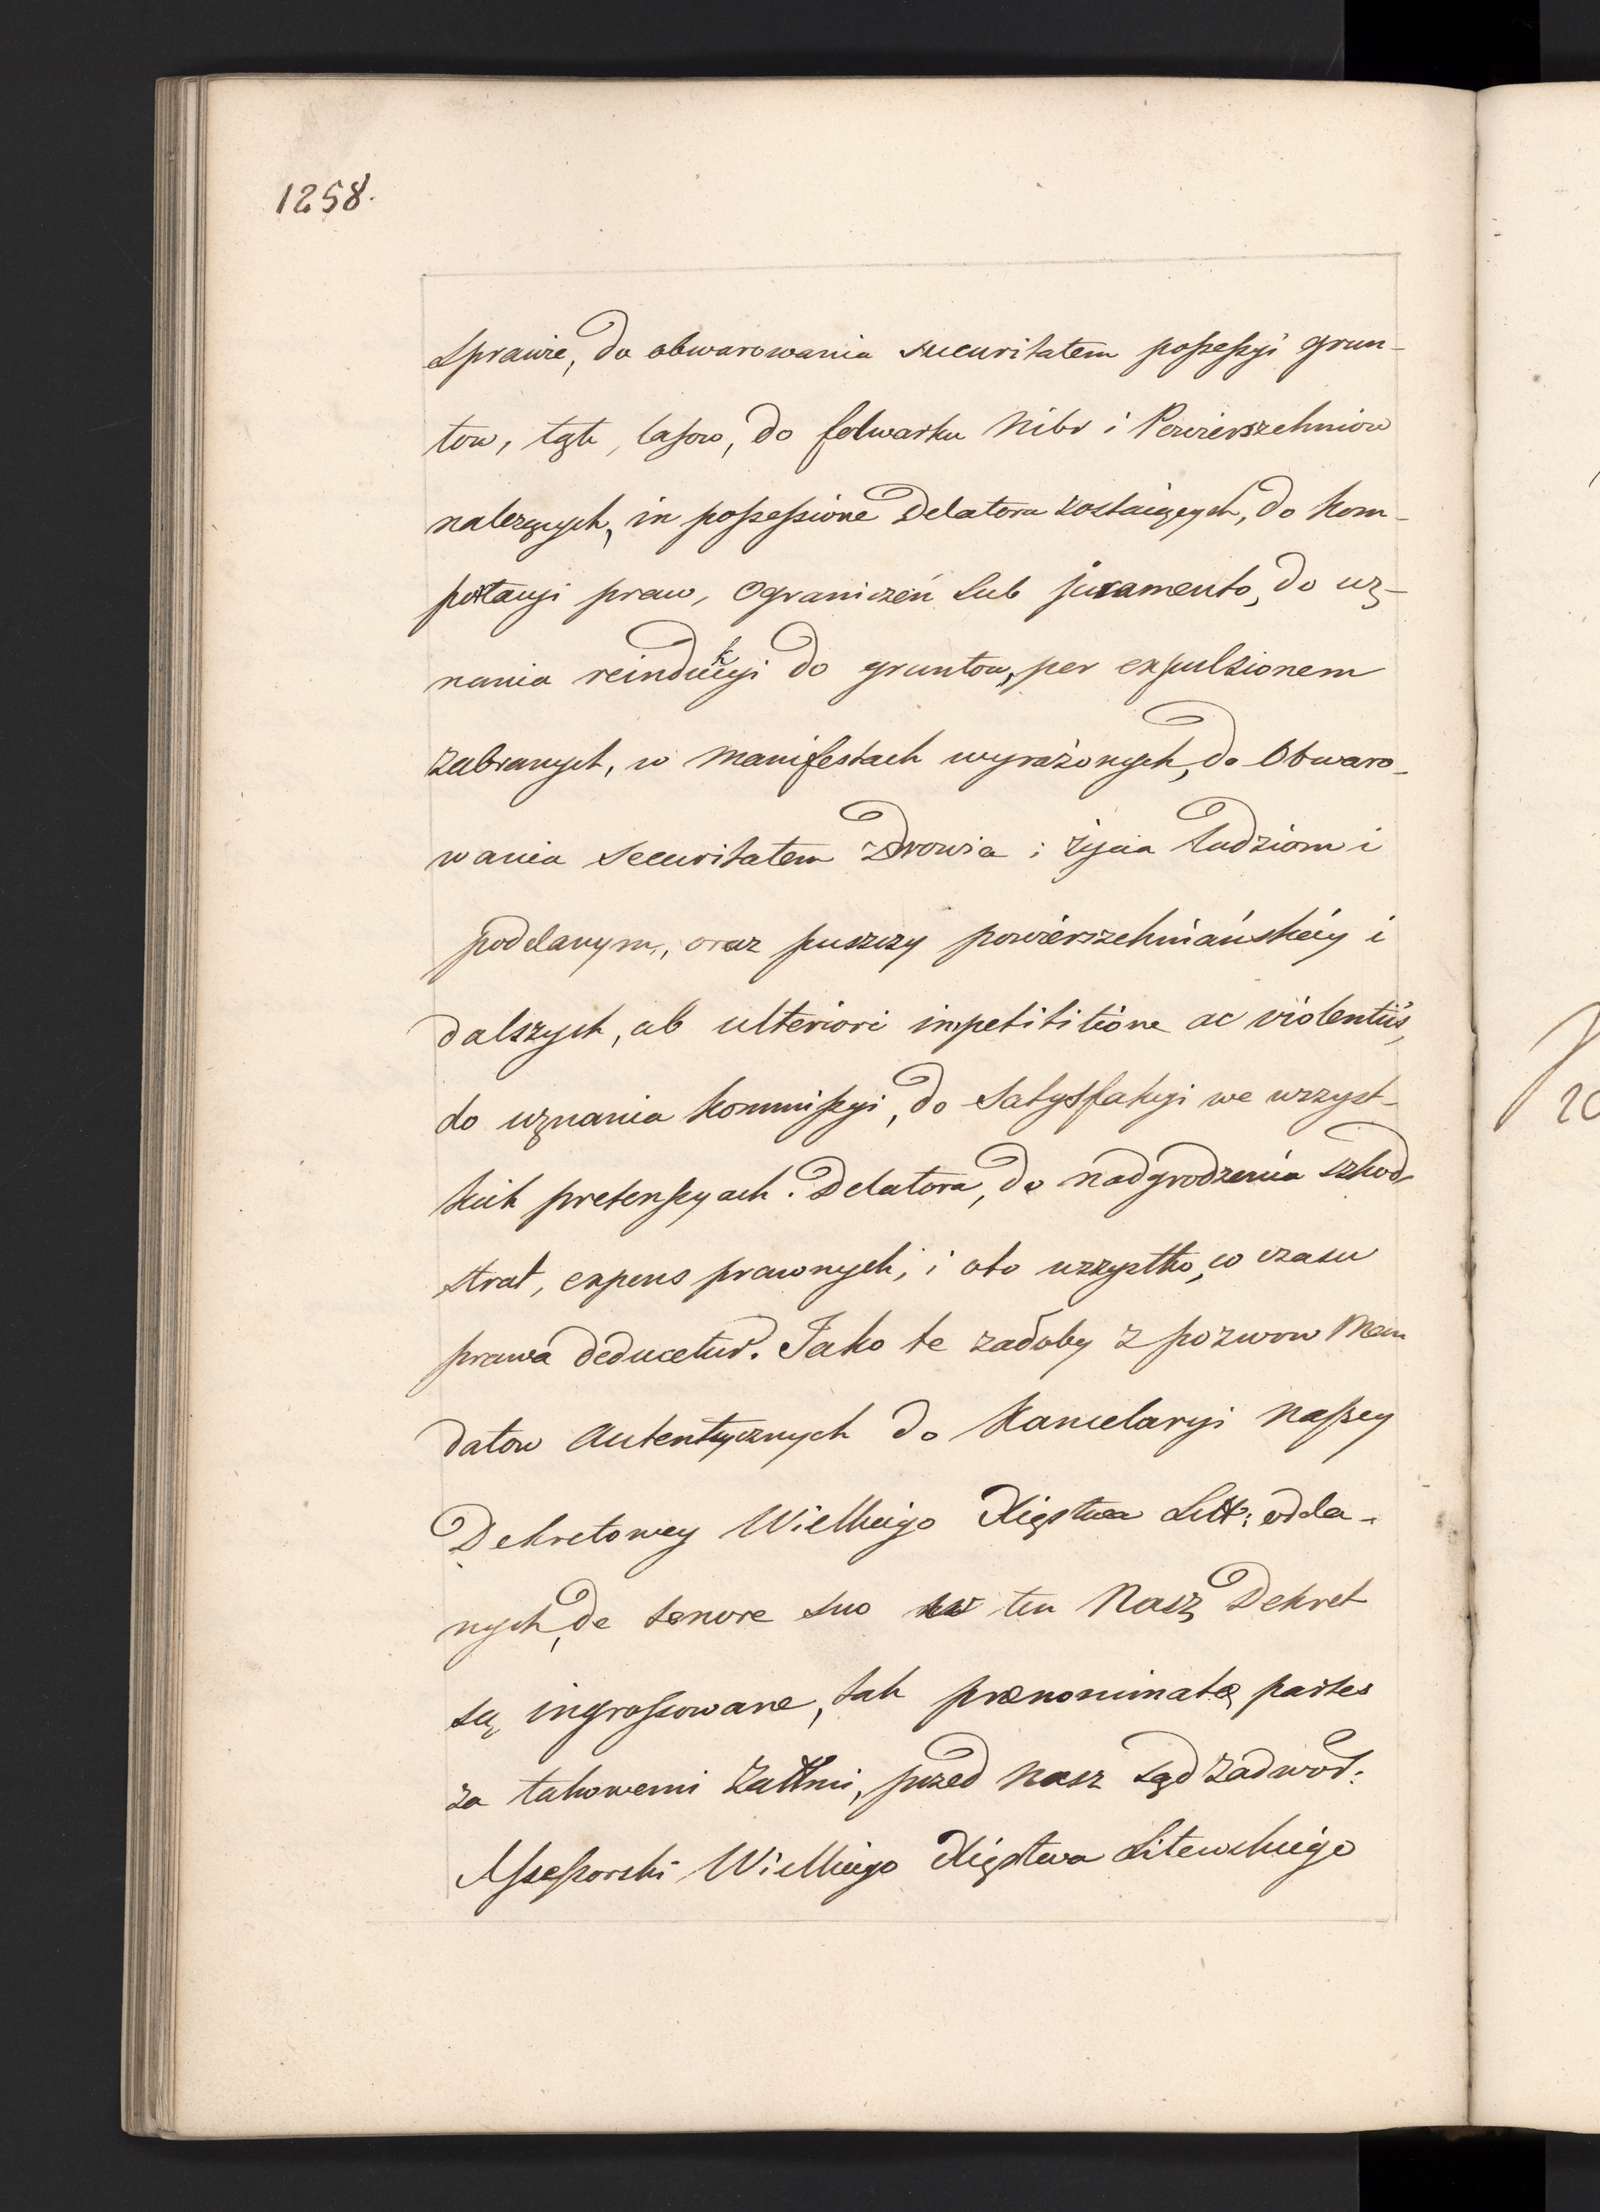 1258.
sprawie, do obwarowania securitatem possessyi grun-
tow, łąk, lasow, do folwarku Nibr i Powierszchniow
należących, in possessione Delatora zostaiących, do kom-
portacyi praw, Ograniczeń sub juramento, do uz-
nania reindukcyi do gruntow, per expulsionem
zabranych, w manifestach wyrażonych, do Obwaro-
wania securitatem zdrowia i życia ludziom i
poddanym, oraz puszczy powierszchniańskiey i
dalszych, ab ulteriori impetititione ac violentiis,
do uznania kommissyi, do Satysfakcyi we wszyst-
kich pretensyach Delatora, do nadgrodzenia szkod
strat, expens prawnych, i oto wszystko, co czasu
prawa deducetur. Jako te żałoby z pozwow Man
datow Autentycznych do Kancelaryi naszey
Dekretowey Wielkiego Xięstwa Litt: odda-
nych, de tenore suo w ten Nasz Dekret
są ingrossowane, tak prænominatæ partes
za takowemi Załłmi, przed nasz sąd Zadwor:
Assessorski Wielkiego Xięstwa Litewskiego